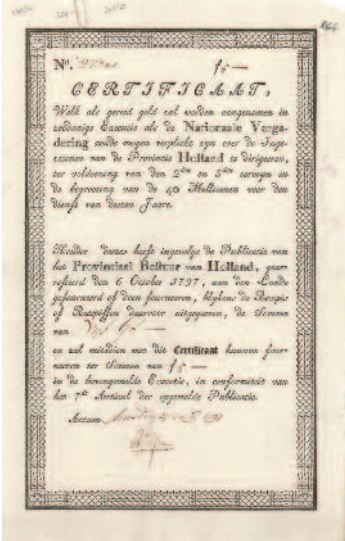 No.
f5—
CERTIFICAAT,
Welk als gereed geld zal worden aangenomen in
zoodanige Executie als de Nationaale Verga-
dering zoude mogen verplicht zyn over de Inge-
zetenen van de Provintie Holland te dirigeren,
ter voldoening van den 2den en 3den termyn in
de begrooting van de 40 Millioenen voor den
dienst van dezen Jaare.
Houder dezes heeft ingevolge de Publicatie van
het Provintiaal Bestuur van Holland, gear-
resteerd den 6 October 1797, aan den Lande
gefourneerd of doen fourneeren, blykens de Recepis
of Recepissen daarvoor uitgegeven, de Somma
van
en zal mitsdien met dit Certificaat kunnen four-
neeren ter Somma van f5—
in de bovengemelde Executie, in conformiteit van
het 7de Articul der opgemelde Publicatie.
Actum